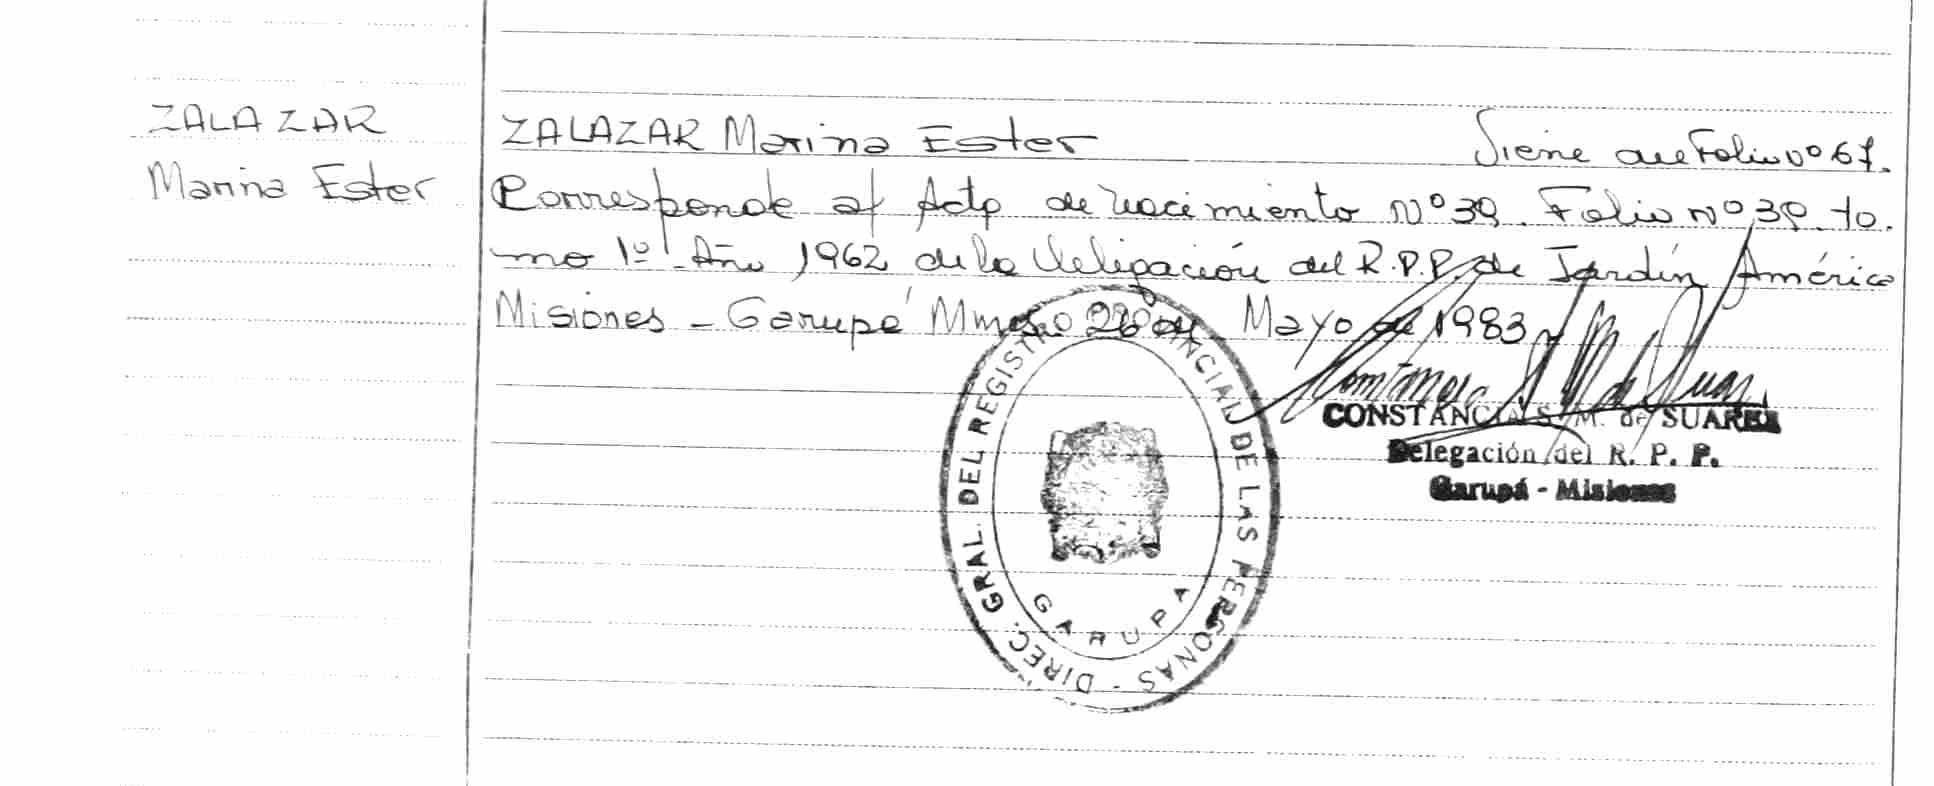 ZALAZAR
Marina Ester
ZALAZAR Marina Ester Viene de Folio Nº 67.
Corresponde al Acta de Nacimiento Nº 39. Folio Nº 39. to.
mo 1º Año 1962 de la Delegación del R.P.P. de Jardín América
Misiones - Garupá Mnes 26 de Mayo de 1983
CONSTANCIA S. M. de SUAREZ
Delegación del R. P. P.
Garupá - Misiones
DIREC. GRAL. DEL REGISTRO PROVINCIAL DE LAS PERSONAS -
GARUPA